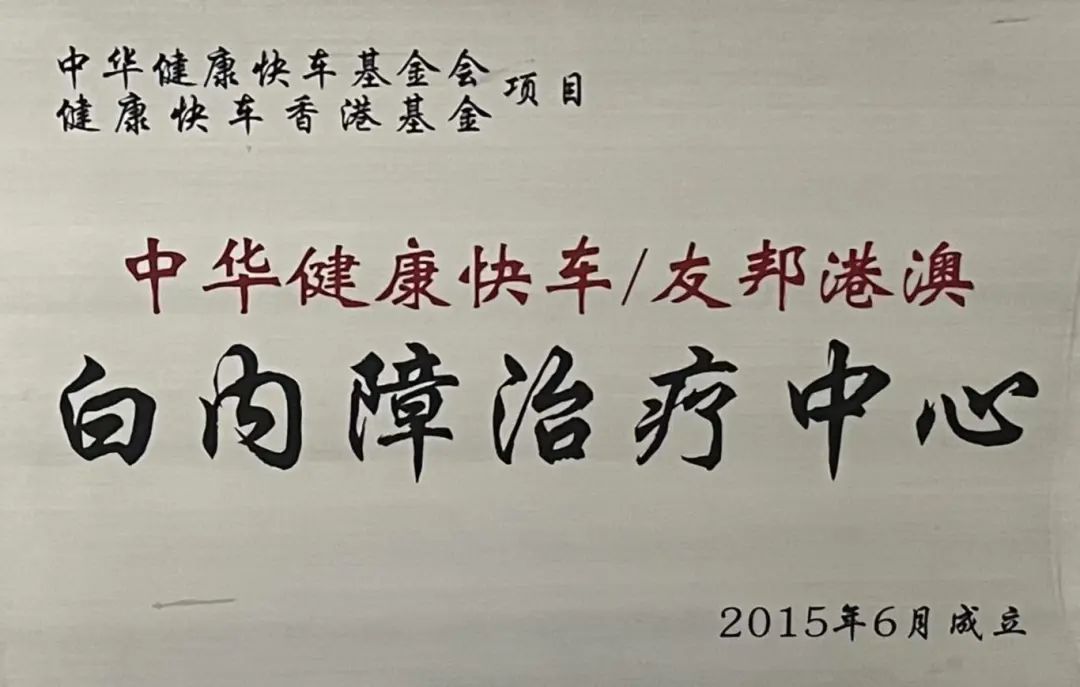 中华健康快车基金会
健康快车香港基金
项目
中华健康快车/友邦港澳
白内障治疗中心
2015年6月成立